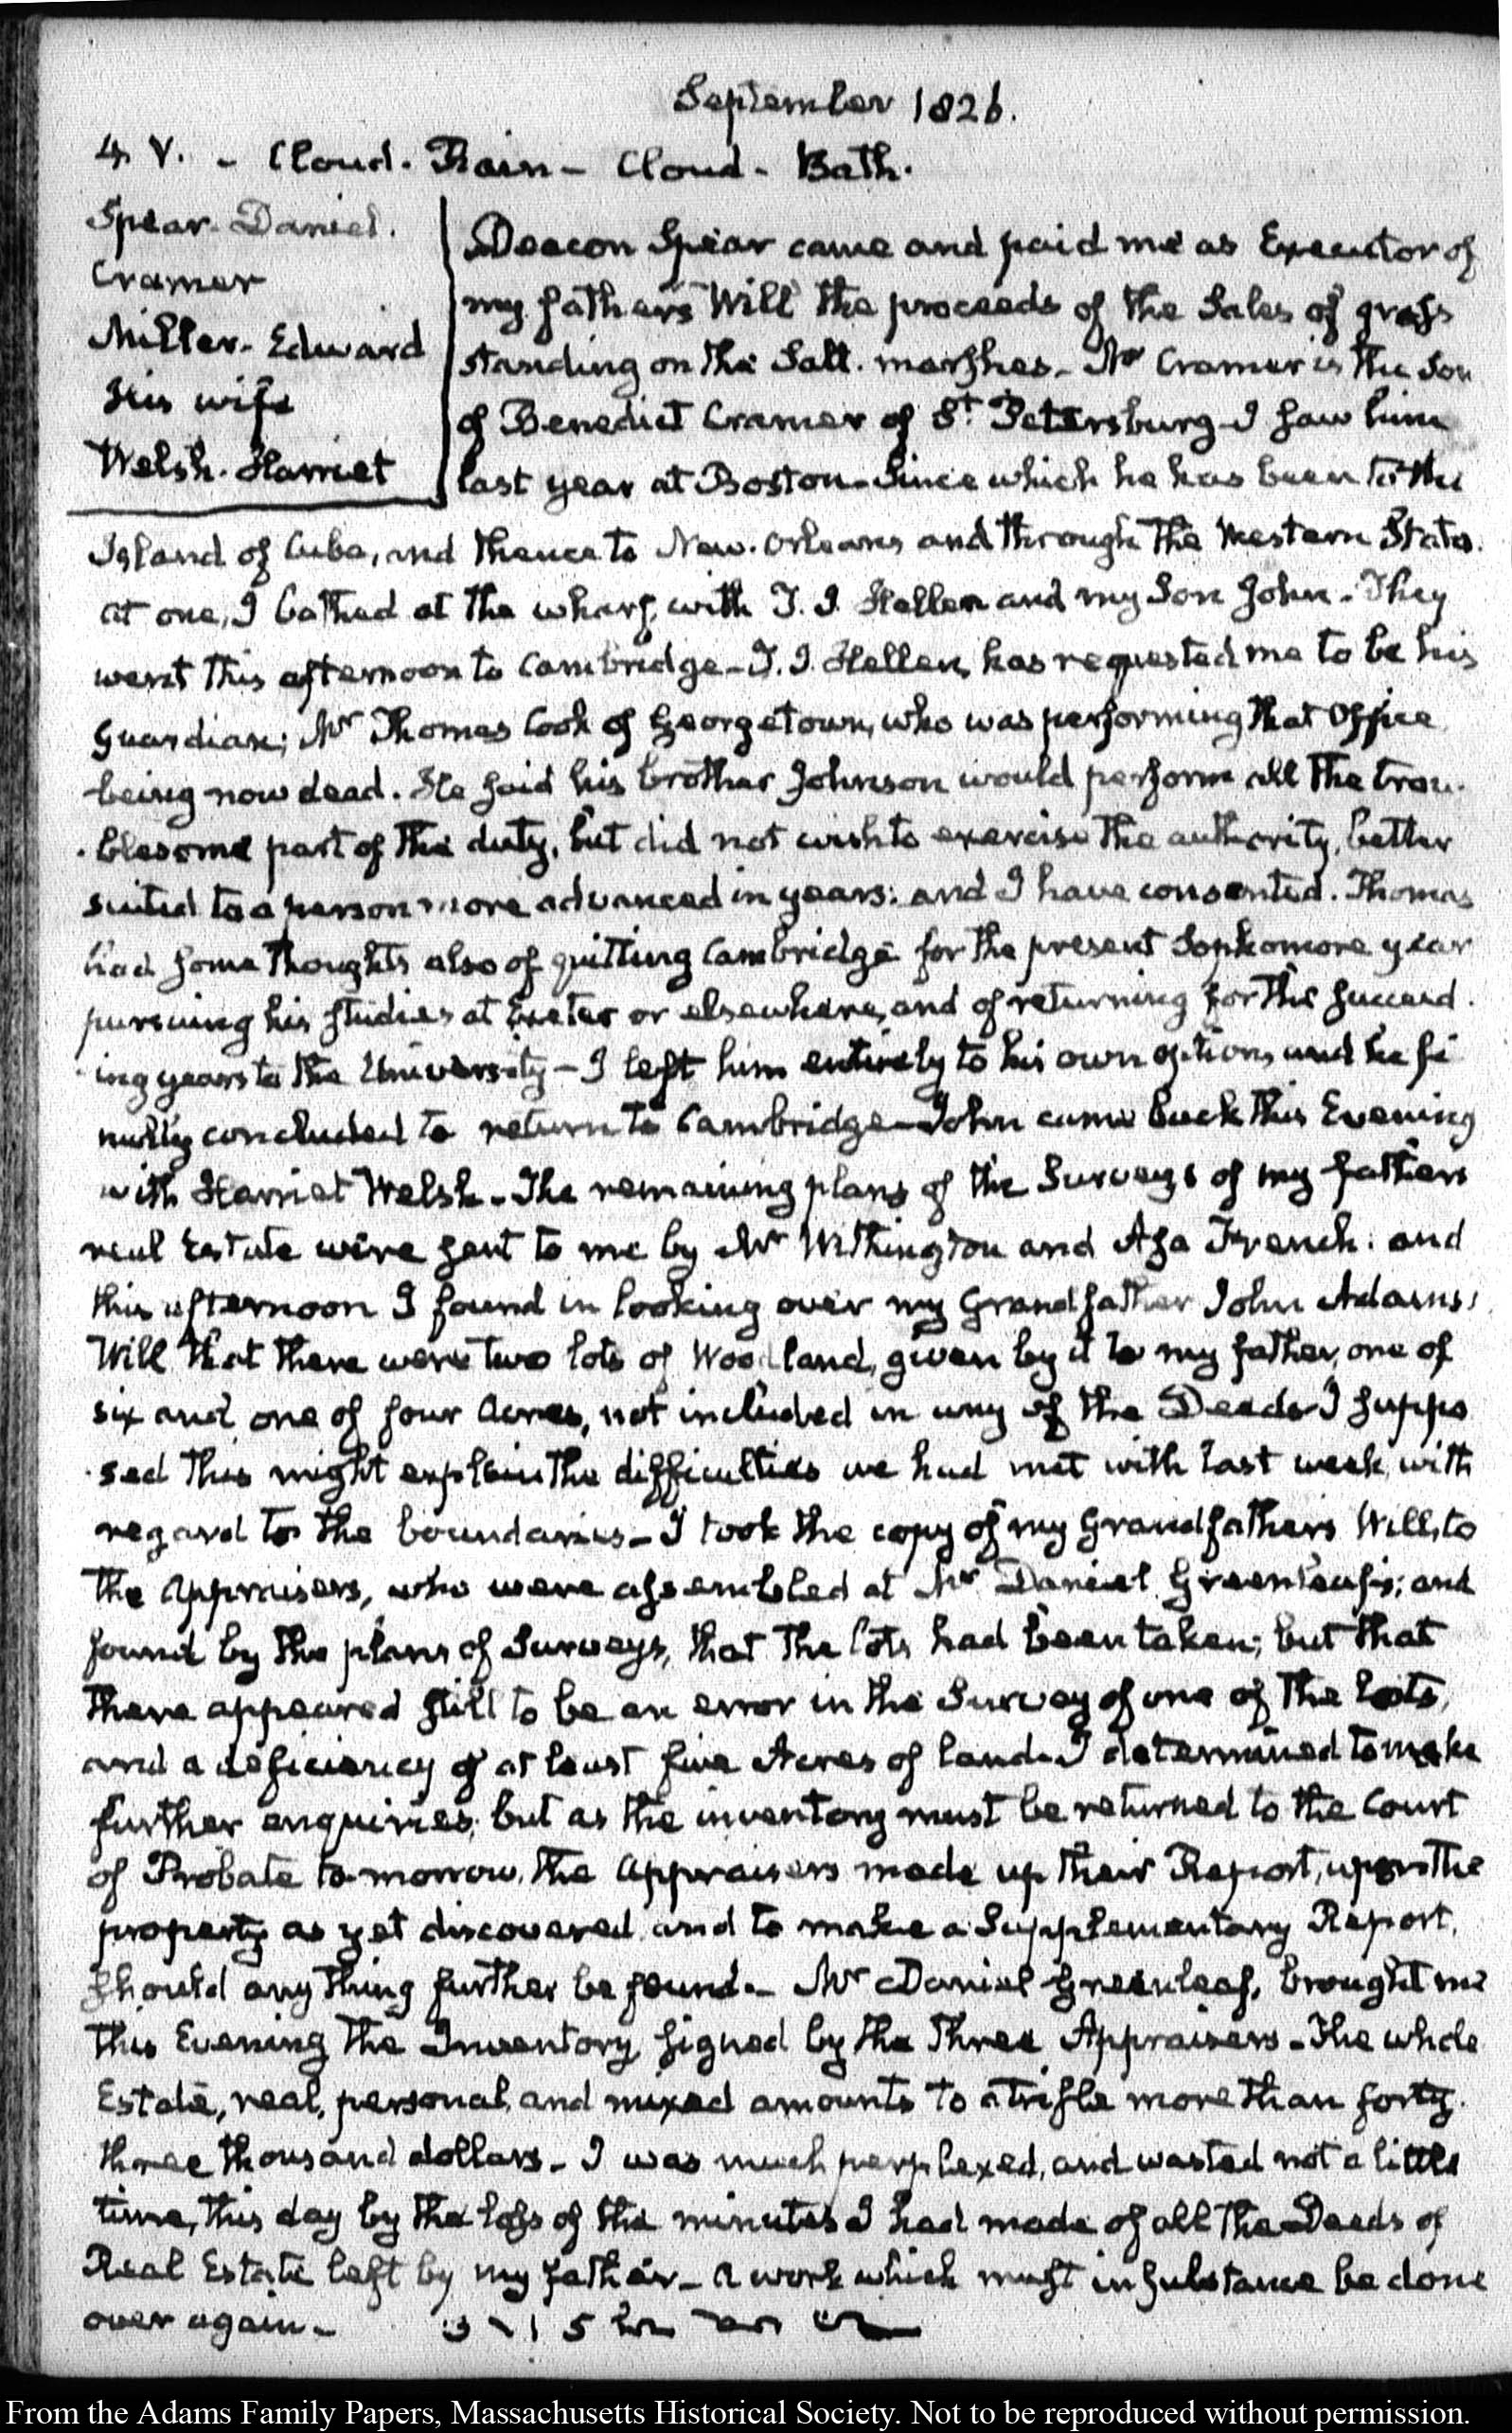 September 1826.
4. V. - Cloud. Rain - Cloud - Bath.
Spear. Daniel.
Cramer
Miller. Edward
His wife
Welsh. Harriet
Deacon Spear came and paid me as Executor of
my father's Will the proceeds of the Sales of grass
standing on the Salt. marshes - Mr Cramer is the Son
of Benedict Cramer of St. Petersburg - I saw him
last year at Boston - Since which he has been to the
Island of Cuba, and thence to New. Orleans and through the Western States.
At one, I bathed at the wharf, with T. J. Hellen and my Son John. They
went this afternoon to Cambridge - T. J. Hellen, has requested me to be his
Guardian; Mr Thomas Cook of Georgetown, who was performing that Office
being now dead. He said his brother Johnson would perform all the trou-
-blesome part of the duty, but did not wish to exercise the authority, better
suited to a person more advanced in years: and I have consented. Thomas
had some thoughts also of quitting Cambridge for the present Sophomore year
pursuing his studies at Exeter or elsewhere, and of returning for the succeed-
-ing years to the University - I left him entirely to his own option, and he fi
nally concluded to return to Cambridge - John came back this Evening
with Harriet Welsh - The remaining plans of the Surveys of my father's
real Estate were sent to me by Mr Withington and Asa French: and
this afternoon I found in looking over my Grandfather John Adams's
Will that there were two lots of Woodland, given by it to my father, one of
six and one of four Acres, not included in any of the Deeds - I suppo
-sed this might explain the difficulties we had met with last week, with
regard to the boundaries - I took the copy of my Grandfather's Will, to
the Appraisers, who were assembled at Mr Daniel Greenleaf's; and
found by the plans of Surveys, that the lots had been taken; but that
there appeared still to be an error in the Survey of one of the lots,
and a deficiency of at least five Acres of land - I determined to make
further enquiries; but as the inventory must be returned to the Court
of Probate to-morrow, the Appraisers made up their Report, upon the
property as yet discovered and to make a Supplementary Report,
should any thing further be found - Mr Daniel Greenleaf, brought me
this Evening the Inventory, signed by the three Appraisers - The whole
Estate, real, personal, and mixed amounts to a trifle more than forty-
three thousand dollars - I was much perplexed, and wasted not a little
time, this day by the loss of the minutes I had made of all the Deeds of
Real Estate left by my father - A work which must in substance be done
over again -
From the Adams Family Papers, Massachusetts Historical Society. Not to be reproduced without permission.